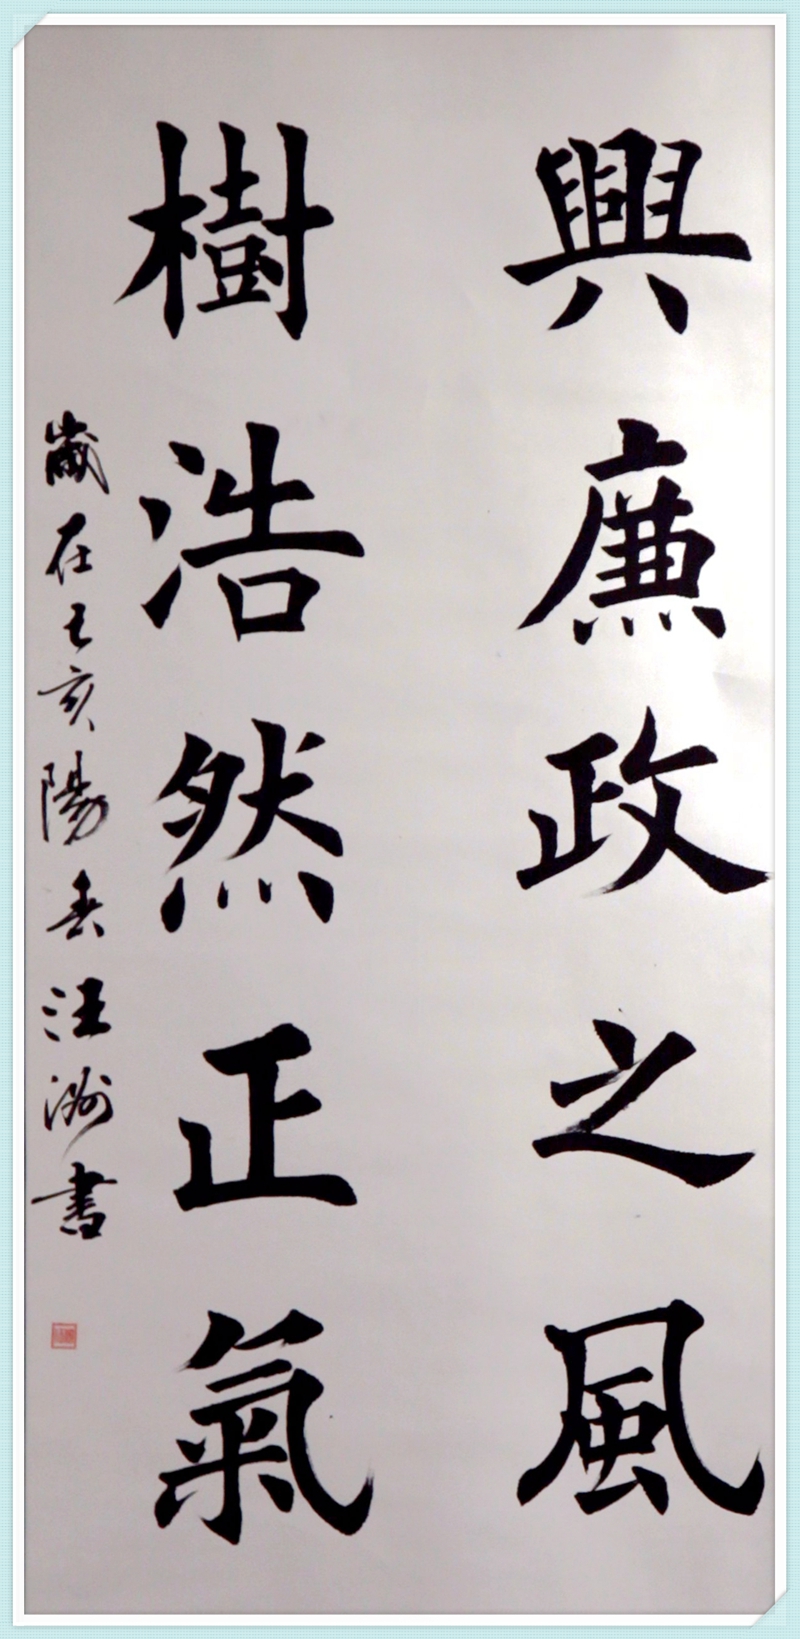 興廉政之風
樹浩然正氣
歲在亥陽春汪洲書